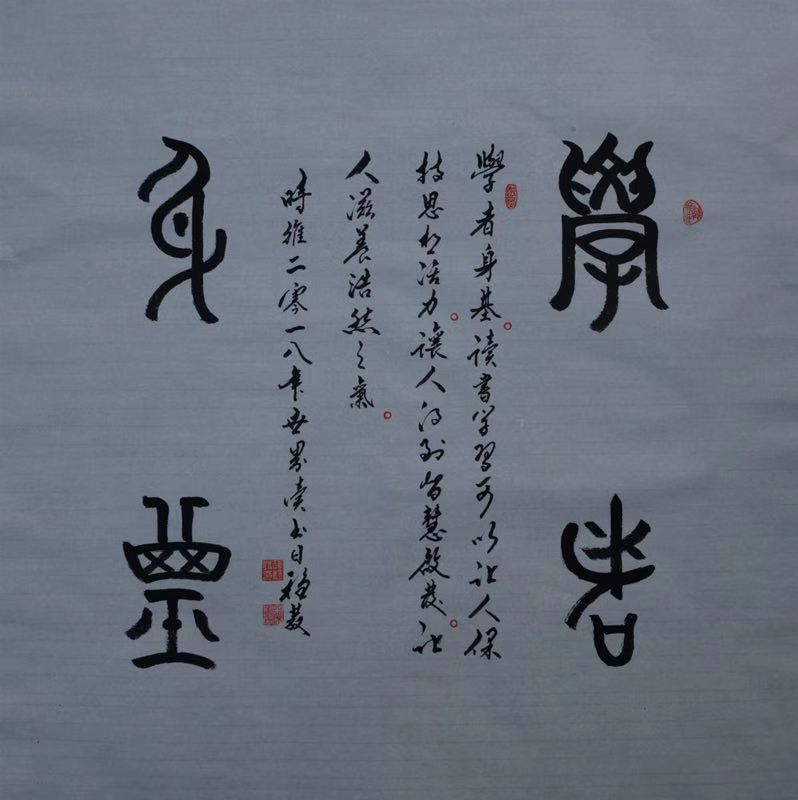 學者
學者身基。读書学習可以让人保
持思想活力。讓人得到智慧啟发。让
人滋養浩然之氣。
時維二零一八年世界读书日
身基